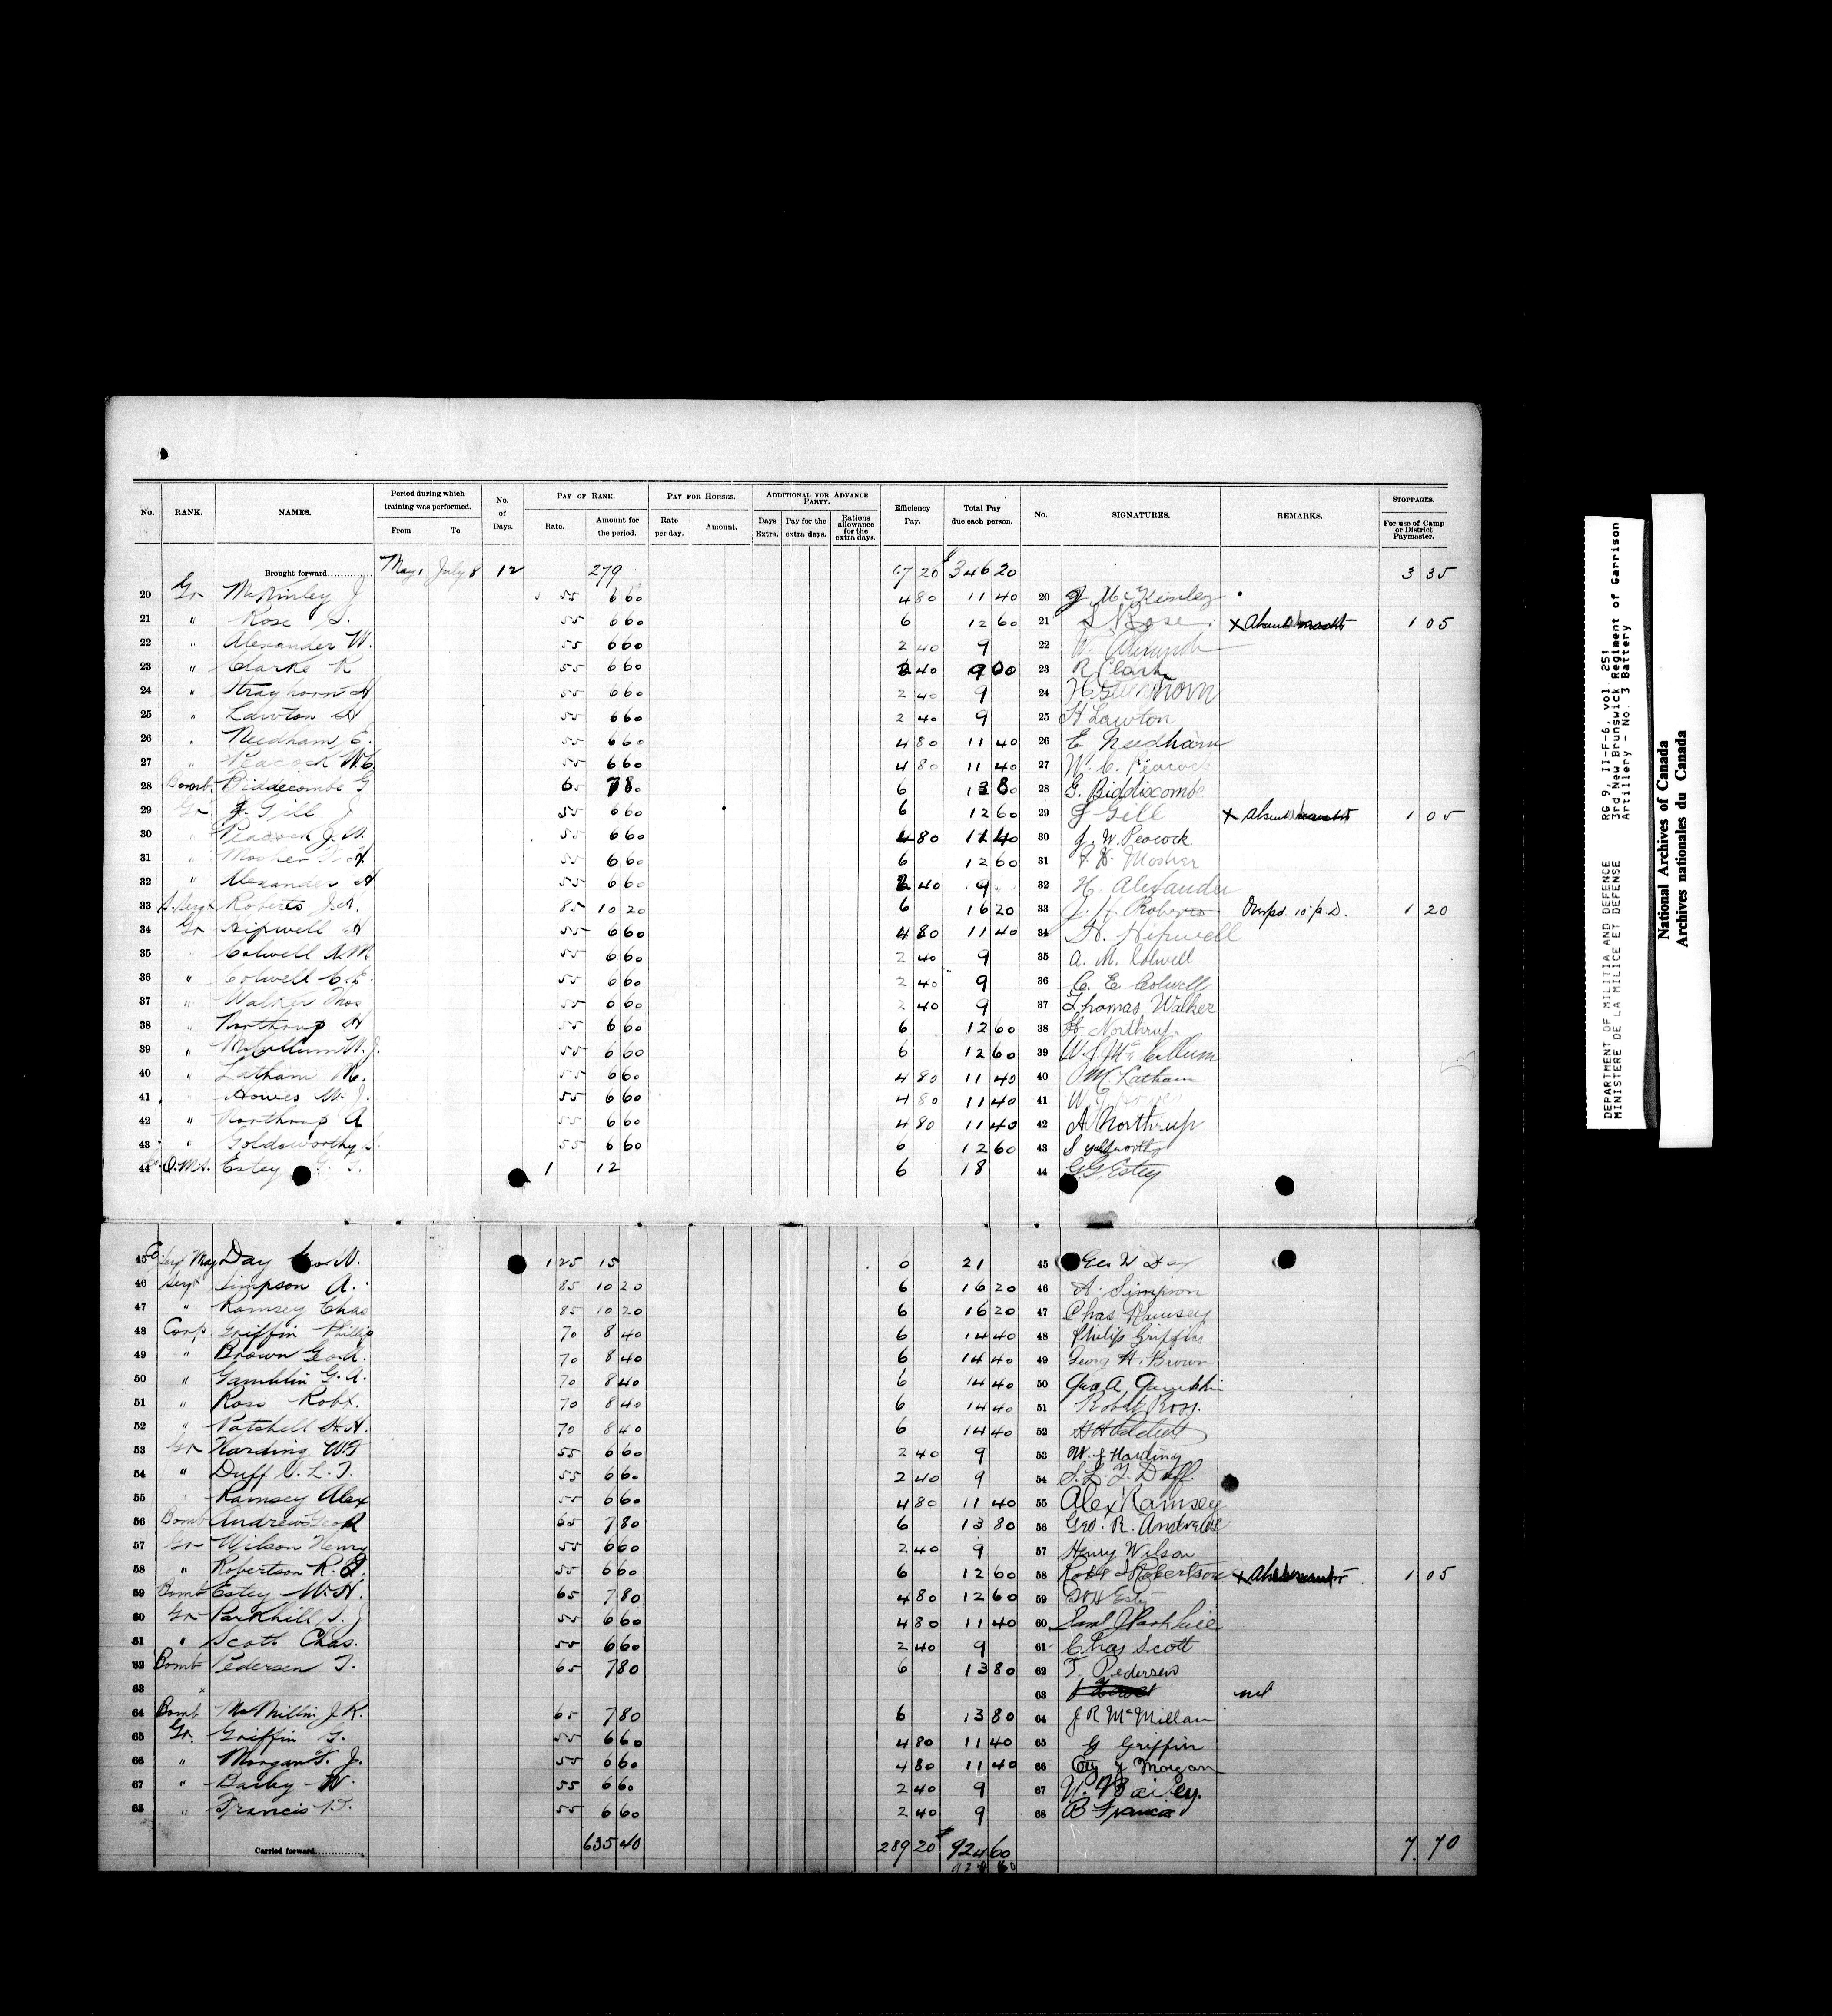 No. RANK. NAMES. Period during which training was performed. From To No. of Days. PAY OF RANK. Rate. Amount for the period. PAY FOR HORSES. Rate per day. Amount. ADDITIONAL FOR ADVANCE PARTY. Days Extra. Pay for the extra days. Rations allowance for the extra days. Efficiency Pay. Total Pay due each person. No. SIGNATURES. REMARKS. STOPPAGES. For use of Camp or District Paymaster.
Brought forward............ May 1 July 8 12 279 67 20 $346 20 3 35
20 Gr McKinley J 55 6 60 4 80 11 40 20 J McKinley
21 " Rose S. 55 6 60 6 12 60 21 S Rose. X Absent 1 05
22 " Alexander W. 55 6 60 2 40 9 22
23 " Clarke R 55 6 60 2 40 9 00 23 R Clark
24 " Strayhorn H 55 6 60 2 40 9 24
25 " Lawton H 55 6 60 2 40 9 25 H Lawton
26 " Needham E. 55 6 60 4 80 11 40 26 E. Needham
27 " Peacock W.C. 55 6 60 4 80 11 40 27 W. C. Peacock
28 Bomb. Biddecombe G 65 7 80 6 13 80 28 G. Biddiscombe
29 Gr J. Gill J 55 6 60 6 12 60 29 J Gill X Absent 1 05
30 " Peacock J.W. 55 6 60 4 80 11 40 30 J. W. Peacock.
31 " Mosher 55 6 60 6 12 60 31 Mosher
32 " Alexander H 55 6 60 2 40 9 32 H. Alexander
33 S. Sergt Roberts J.H. 85 10 20 6 16 20 33 J. H. Roberts Overpd. 10¢ p. D. 1 20
34 Gr Hipwell H 55 6 60 4 80 11 40 34 H. Hipwell
35 " Colwell A.M 55 6 60 2 40 9 35 A. M. Colwell
36 " Colwell C.E. 55 6 60 2 40 9 36 C. E. Colwell
37 " Walker Thos 55 6 60 2 40 9 37 Thomas Walker
38 " Northrup H 55 6 60 6 12 60 38 H. Northrup.
39 " McCullum W.J. 55 6 60 6 12 60 39 W. J. McCullum
40 " Latham M. 55 6 60 4 80 11 40 40 M. Latham
41 " Howes W. J. 55 6 60 4 80 11 40 41
42 " Northrup A 55 6 60 4 80 11 40 42 A Northrup
43 " Goldsworthy S. 55 6 60 6 12 60 43
44 Q.M.S. Estey G. G. 1 12 6 18 44 G. G. Estey
45 Co. Sergt Maj Day Geo. W. 1 25 15 6 21 45 Geo W Day
46 Sergt Simpson A. 85 10 20 6 16 20 46 A. Simpson
47 " Ramsey Chas 85 10 20 6 16 20 47 Chas Ramsey
48 Corp Griffin Phillip 70 8 40 6 14 40 48 Philip Griffin
49 " Brown Geo.H. 70 8 40 6 14 40 49 Georg H. Brown
50 " Gamblin G.A. 70 8 40 6 14 40 50 Geo A. Gamblin
51 " Ross Robt. 70 8 40 6 14 40 51 Robt Ross.
52 " Patchell H.H. 70 8 40 6 14 40 52
53 Gr Harding W.J 55 6 60 2 40 9 53 W. J Harding
54 " Duff S. L. T. 55 6 60 2 40 9 54 S. L. T. Duff.
55 " Ramsey Alex 55 6 60 4 80 11 40 55 Alex Ramsey
56 Bomb Andrews Geo R 65 7 80 6 13 80 56 Geo. R. Andrews
57 Gr Wilson Henry 55 6 60 2 40 9 57 Henry Wilson
58 " Robertson R. 55 6 60 6 12 60 58 Robertson X 1 05
59 Bomb Estey W.H. 65 7 80 4 80 12 60 59 W H Estey
60 Gr Parkhill S. J 55 6 60 4 80 11 40 60 Saml J Parkhill
61 " Scott Chas. 55 6 60 2 40 9 61 Chas Scott
62 Bomb Pedersen T. 65 7 80 6 13 80 62 T. Pedersen
63 63
64 Bomb McMillin J.R. 65 7 80 6 13 80 64 J R McMillan
65 Gr. Griffin G. 55 6 60 4 80 11 40 65 G Griffin
66 " Morgan T. J. 55 6 60 4 80 11 40 66 Morgan
67 " Bailey W. 55 6 60 2 40 9 67 W. Bailey.
68 " Francis B. 55 6 60 2 40 9 68 B Francis
Carried forward............ 635 40 289 20 $924 60 7 70
924 60
DEPARTMENT OF MILITIA AND DEFENCE RG 9, II-F-6, vol. 251
MINISTERE DE LA MILICE ET DEFENSE 3rd New Brunswick Regiment of Garrison
Artillery - No. 3 Battery
National Archives of Canada
Archives nationales du Canada